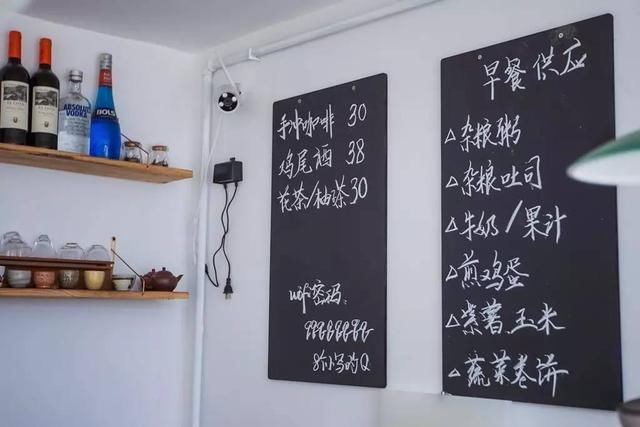 ABSOLUT
VODKA
BOLS
手冲咖啡 30
鸡尾酒 38
花茶/柚茶30
wifi密码:
qqqqqqqq
8个小写的Q
早餐供应
△杂粮粥
△杂粮吐司
△牛奶/果汁
△煎鸡蛋
△紫薯玉米
△蔬菜卷饼